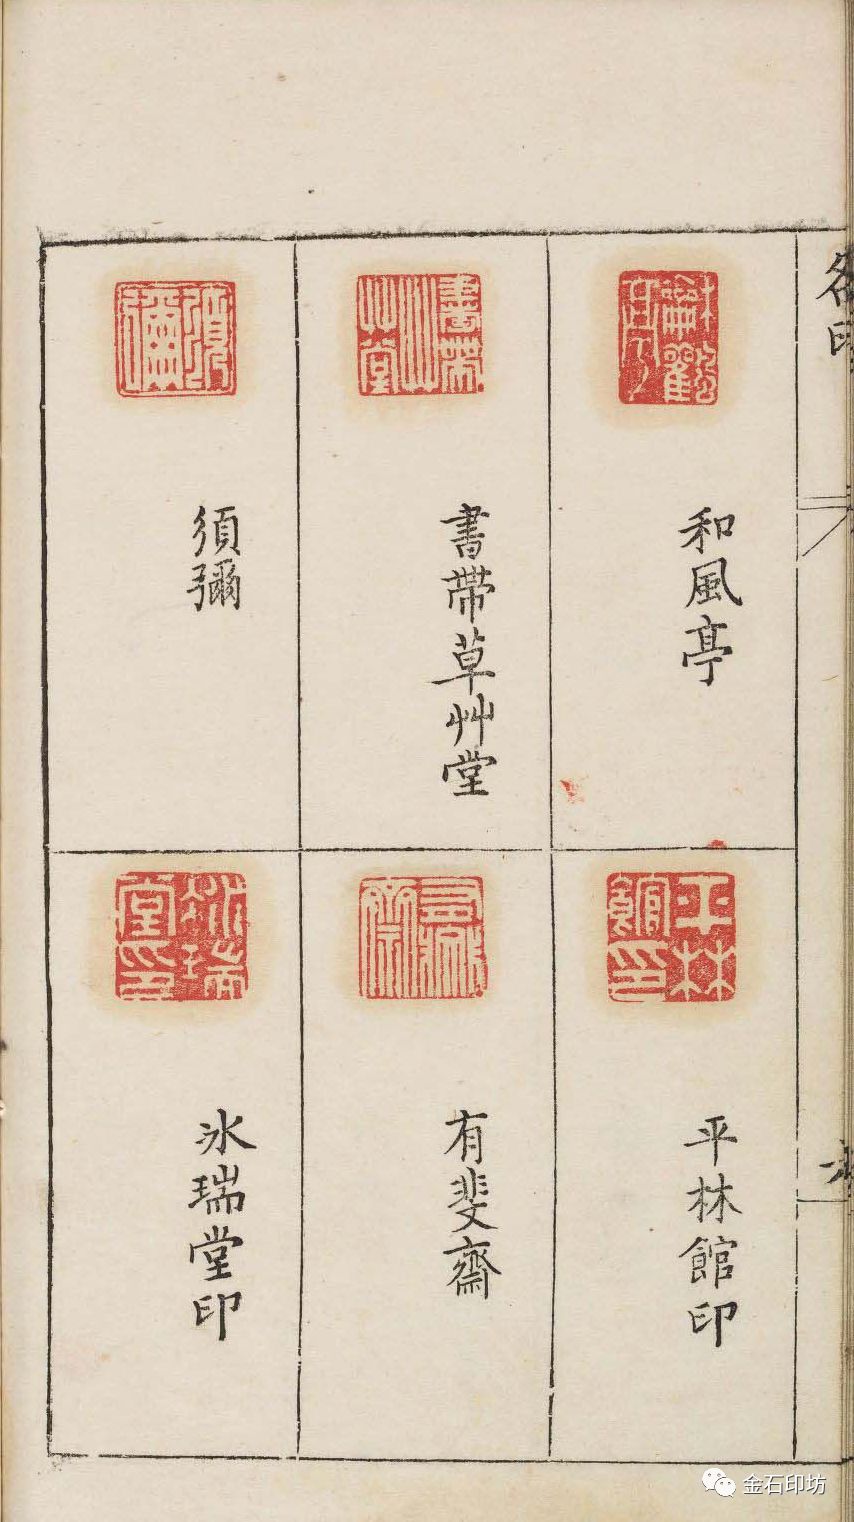 和風亭
平林館印
書帶草艸堂
有斐齋
須彌
冰瑞堂印
金石印坊